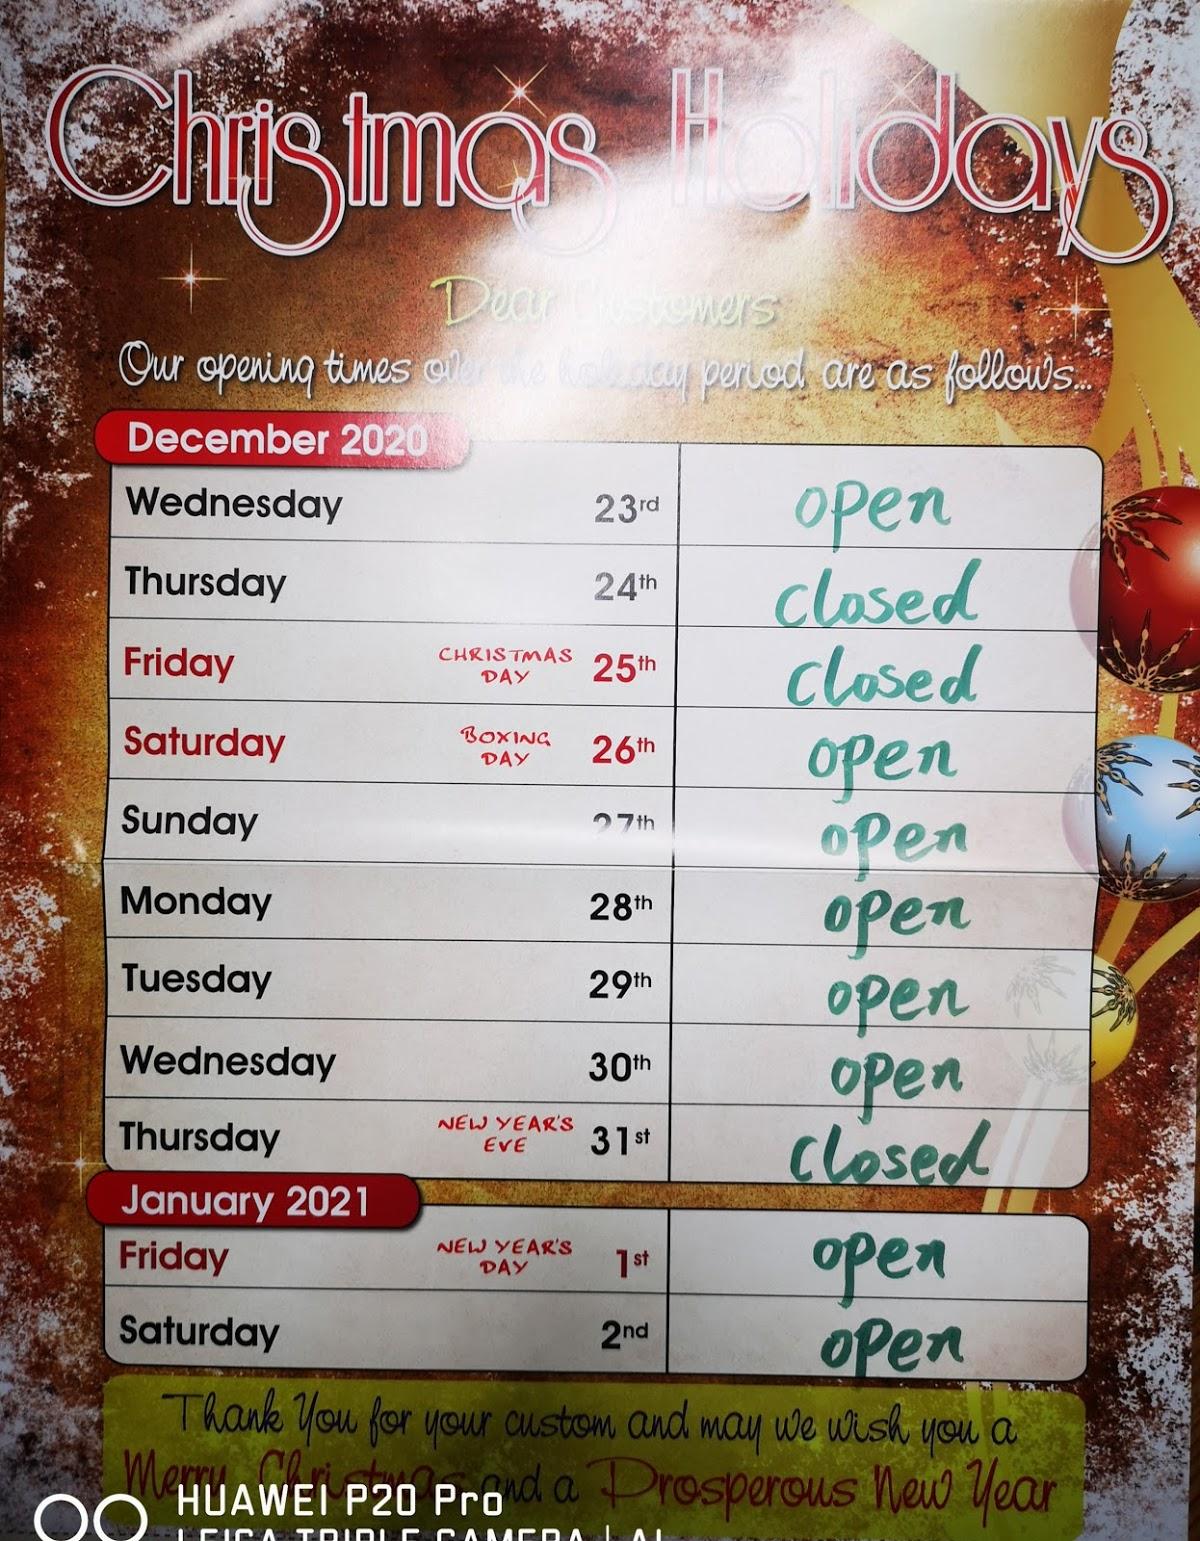 Christmas Holidays
Dear Customers
Our opening times over the holiday period are as follows...
December 2020
Wednesday 23rd open
Thursday 24th closed
Friday CHRISTMAS DAY 25th closed
Saturday BOXING DAY 26th open
Sunday 27th open
Monday 28th open
Tuesday 29th open
Wednesday 30th open
Thursday NEW YEAR'S EVE 31st closed
January 2021
Friday NEW YEAR'S DAY 1st open
Saturday 2nd open
Thank You for your custom and may we wish you a
Merry Christmas and a Prosperous New Year
HUAWEI P20 Pro
LEICA TRIPLE CAMERA | AI